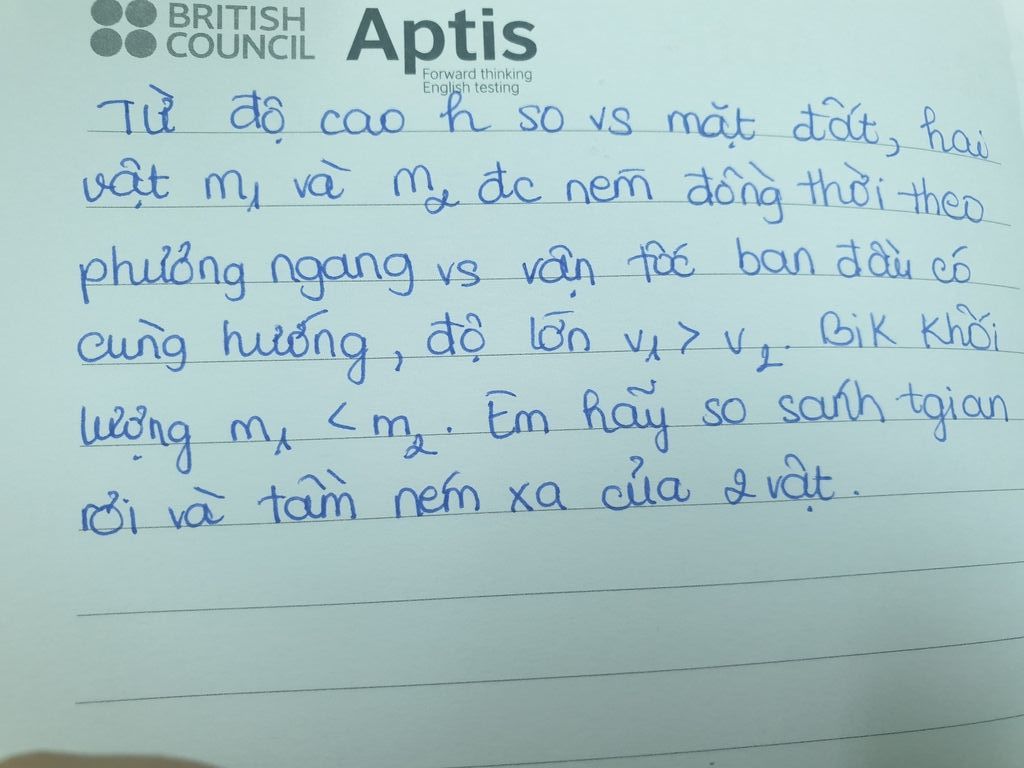 BRITISH
COUNCIL
Aptis
Forward thinking
English testing
Từ độ cao h so vs mặt đất, hai
vật m₁ và m₂ đc ném đồng thời theo
phương ngang vs vận tốc ban đầu có
cùng hướng, độ lớn v₁ > v₂. Bik khối
lượng m₁ < m₂. Em hãy so sánh tgian
rơi và tầm ném xa của 2 vật.